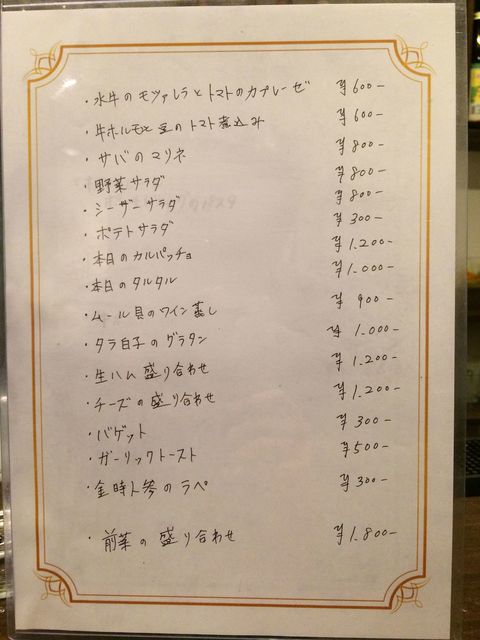 ・水牛のモツァレラとトマトのカプレーゼ ¥600-
・牛ホルモンと豆のトマト煮込み ¥600-
・サバのマリネ ¥800-
・野菜サラダ ¥800-
・シーザーサラダ ¥800-
・ポテトサラダ ¥300-
・本日のカルパッチョ ¥1.200-
・本日のタルタル ¥1.000-
・ムール貝のワイン蒸し ¥900-
・タラ白子のグラタン ¥1.000-
・生ハム盛り合わせ ¥1.200-
・チーズの盛り合わせ ¥1.200-
・バゲット ¥300-
・ガーリックトースト ¥500-
・金時人参のラペ ¥300-
・前菜の盛り合わせ ¥1.800-